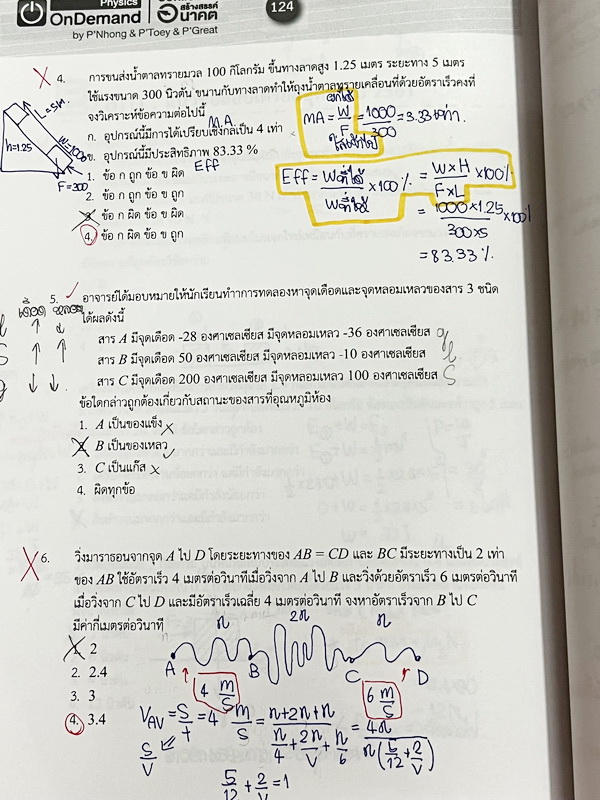 Physics
OnDemand
สร้างสรรค์
อนาคต
by P'Nhong & P'Toey & P'Great
124
4. การขนส่งน้ำตาลทรายมวล 100 กิโลกรัม ขึ้นทางลาดสูง 1.25 เมตร ระยะทาง 5 เมตร
ใช้แรงขนาด 300 นิวตัน ขนานกับทางลาดทำให้ถุงน้ำตาลทรายเคลื่อนที่ด้วยอัตราเร็วคงที่
จงวิเคราะห์ข้อความต่อไปนี้
M.A.
ก. อุปกรณ์นี้มีการได้เปรียบเชิงกลเป็น 4 เท่า
ข. อุปกรณ์นี้มีประสิทธิภาพ 83.33 %
Eff
1. ข้อ ก ถูก ข้อ ข ผิด
2. ข้อ ก ถูก ข้อ ข ถูก
3. ข้อ ก ผิด ข้อ ข ผิด
4. ข้อ ก ผิด ข้อ ข ถูก
L=5M.
h=1.25
F=300
MA = W/F = 1000/300 = 3.33 เท่า.
Eff = Wที่ได้/Wที่ใช้ × 100% = W×H/F×L × 100%
= 1000×1.25/300×5 × 100%
= 83.33 %
5. อาจารย์ได้มอบหมายให้นักเรียนทำาการทดลองหาจุดเดือดและจุดหลอมเหลวของสาร 3 ชนิด
ได้ผลดังนี้
สาร A มีจุดเดือด -28 องศาเซลเซียส มีจุดหลอมเหลว -36 องศาเซลเซียส g
สาร B มีจุดเดือด 50 องศาเซลเซียส มีจุดหลอมเหลว -10 องศาเซลเซียส l
สาร C มีจุดเดือด 200 องศาเซลเซียส มีจุดหลอมเหลว 100 องศาเซลเซียส S
ข้อใดกล่าวถูกต้องเกี่ยวกับสถานะของสารที่อุณหภูมิห้อง
1. A เป็นของแข็ง
2. B เป็นของเหลว
3. C เป็นแก๊ส
4. ผิดทุกข้อ
6. วิ่งมาราธอนจากจุด A ไป D โดยระยะทางของ AB = CD และ BC มีระยะทางเป็น 2 เท่า
ของ AB ใช้อัตราเร็ว 4 เมตรต่อวินาทีเมื่อวิ่งจาก A ไป B และวิ่งด้วยอัตราเร็ว 6 เมตรต่อวินาที
เมื่อวิ่งจาก C ไป D และมีอัตราเร็วเฉลี่ย 4 เมตรต่อวินาที จงหาอัตราเร็วจาก B ไป C
มีค่ากี่เมตรต่อวินาที
1. 2
2. 2.4
3. 3
4. 3.4
A B C D
4 m/s
6 m/s